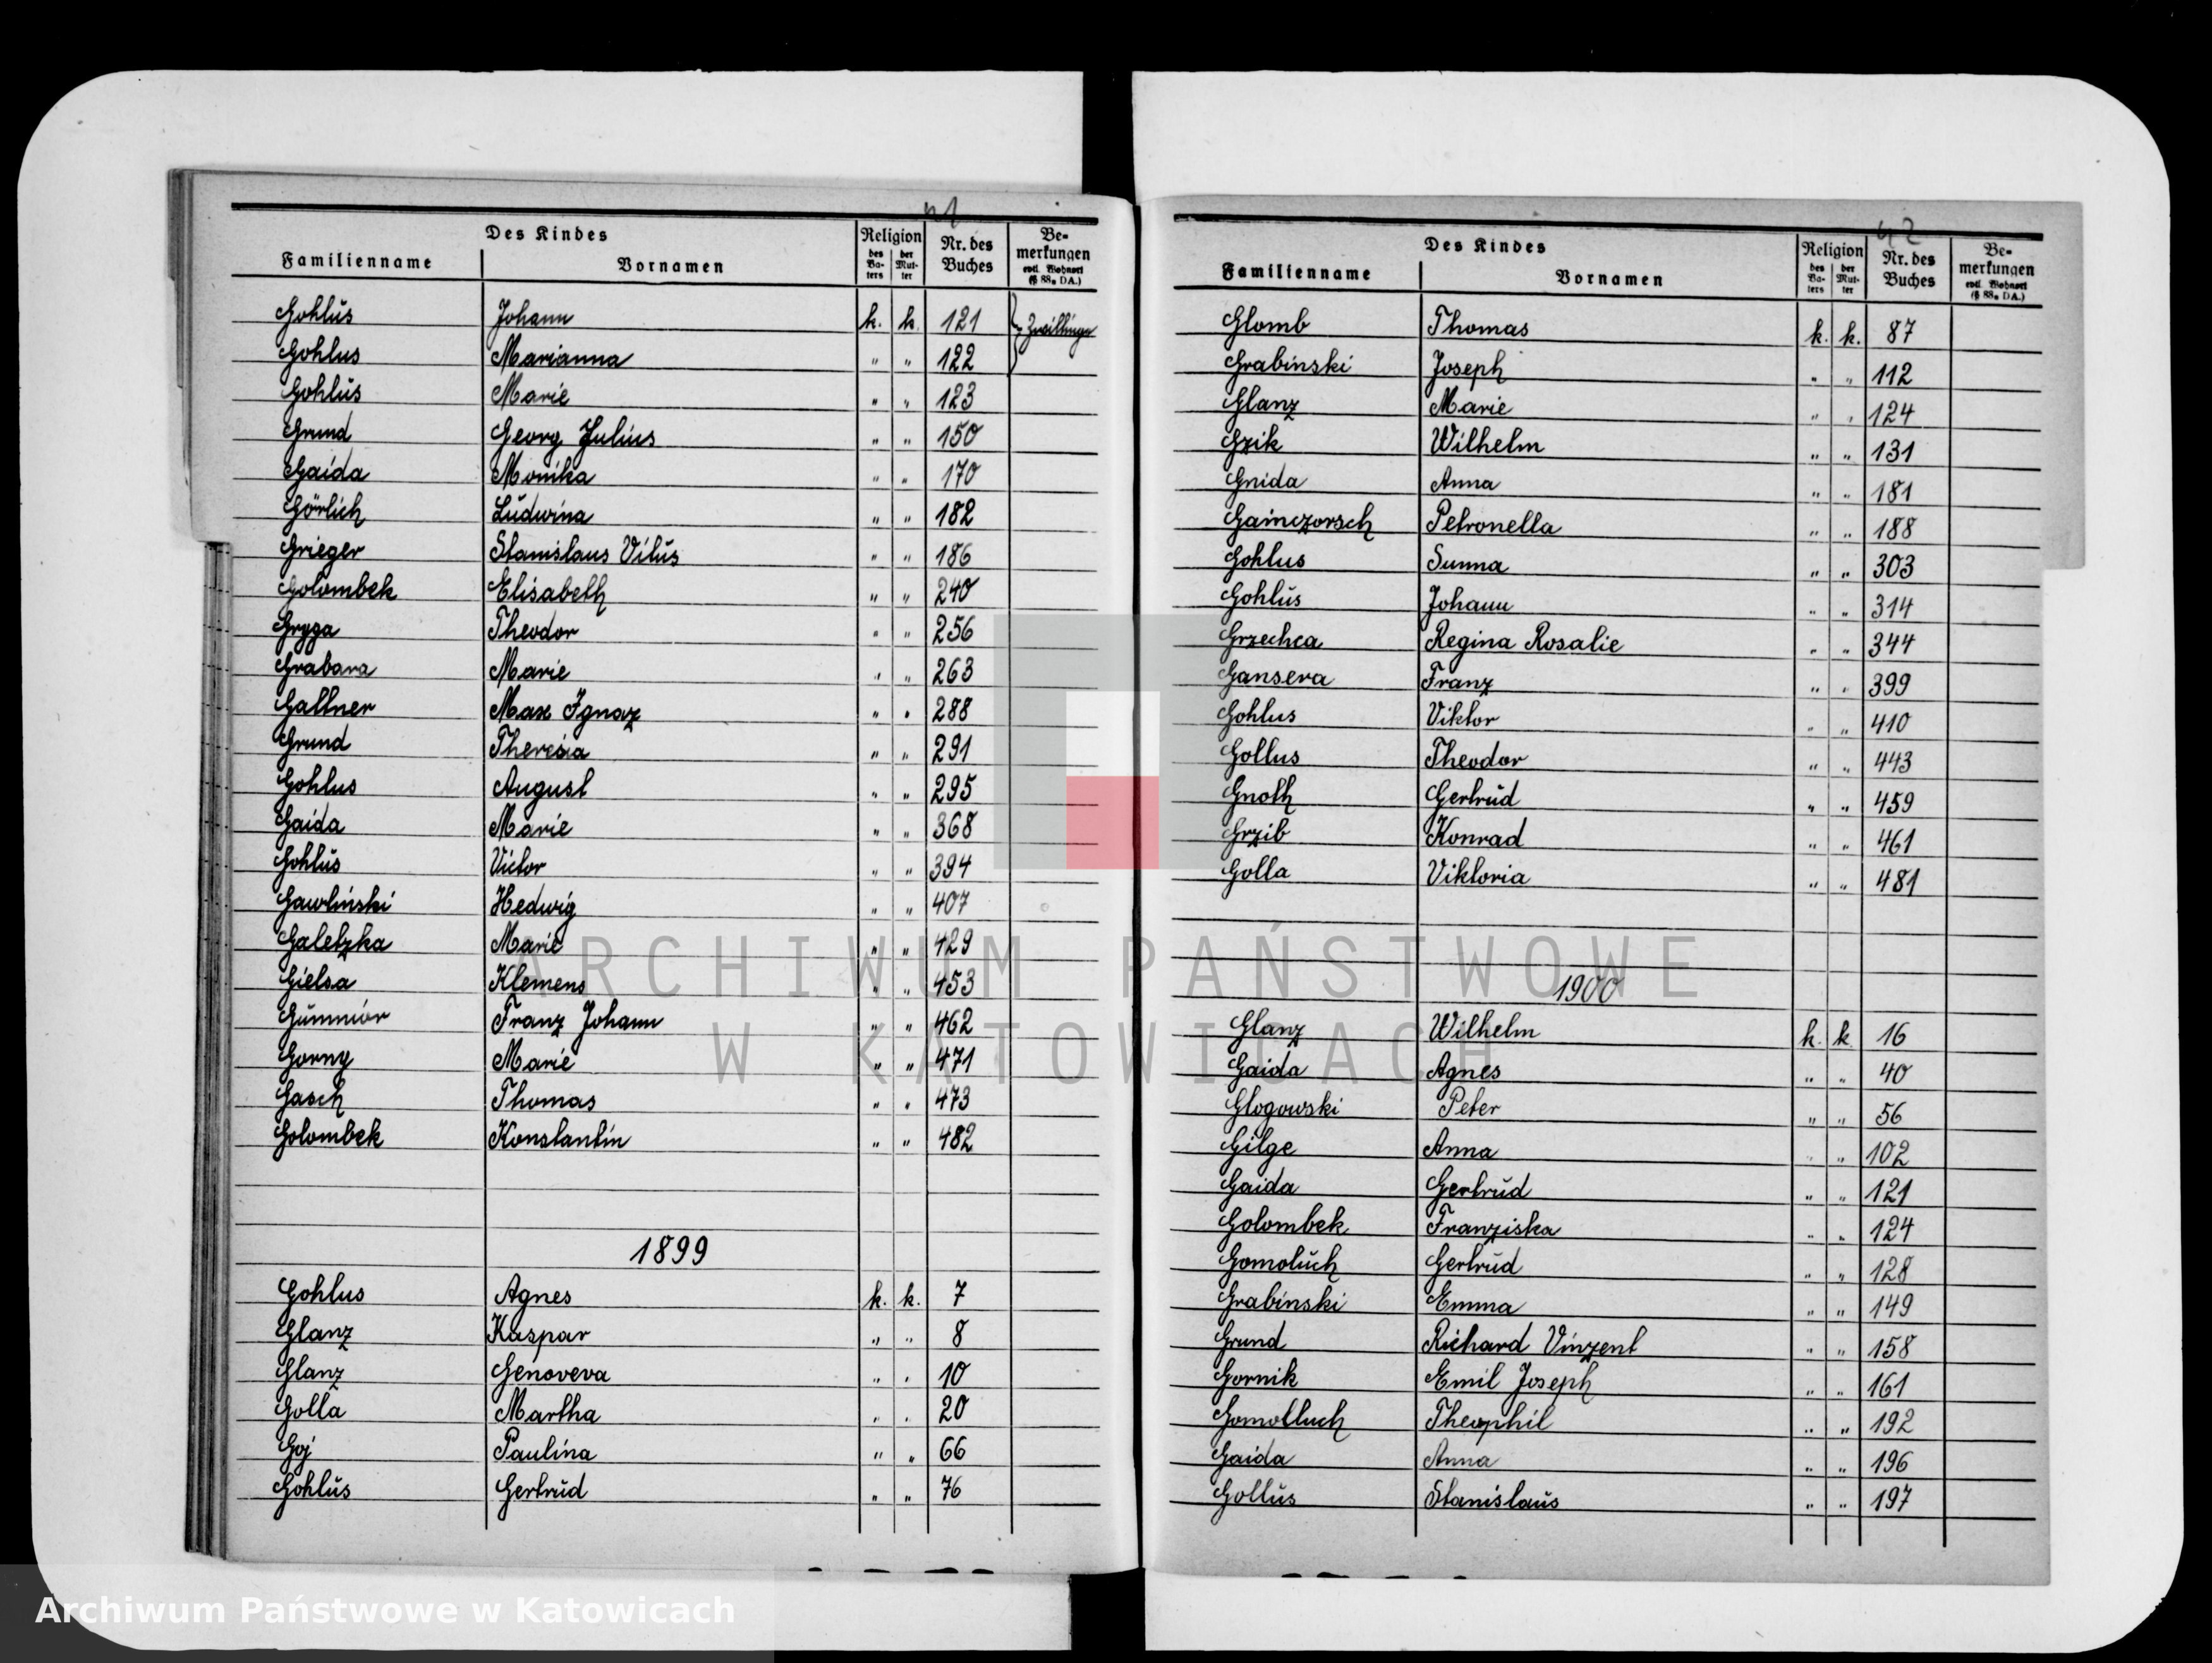 41
Des Kindes Religion Nr. des Buches Bemerkungen evtl. Wohnort (§ 88a DA.)
Familienname Vornamen des Vaters der Mutter
Gohlus Johann k. k. 121 Zwillinge
Gohlus Marianna " " 122
Gohlus Marie " " 123
Grund Georg Julius " " 150
Gaida Monika " " 170
Görlich Ludwina " " 182
Grieger Stanislaus Vitus " " 186
Golombek Elisabeth " " 240
Gryga Theodor " " 256
Grabara Marie " " 263
Gallner Max Ignaz " " 288
Grund Theresia " " 291
Gohlus August " " 295
Gaida Marie " " 368
Gohlus Victor " " 394
Gawlinski Hedwig " " 407
Galetzka Marie " " 429
Gielsa Klemens " " 453
Gummior Franz Johann " " 462
Gorny Marie " " 471
Gasch Thomas " " 473
Golombek Konstantin " " 482
1899
Gohlus Agnes k. k. 7
Glanz Kaspar " " 8
Glanz Genoveva " " 10
Golla Martha " " 20
Goj Paulina " " 66
Gohlus Gertrud " " 76
42
Des Kindes Religion Nr. des Buches Bemerkungen evtl. Wohnort (§ 88a DA.)
Familienname Vornamen des Vaters der Mutter
Glomb Thomas k. k. 87
Grabinski Joseph " " 112
Glanz Marie " " 124
Gzik Wilhelm " " 131
Gnida Anna " " 181
Gainczorsch Petronella " " 188
Gohlus Sunna " " 303
Gohlus Johann " " 314
Grzechca Regina Rosalie " " 344
Gansera Franz " " 399
Gohlus Viktor " " 410
Gollus Theodor " " 443
Gnoth Gertrud " " 459
Grzib Konrad " " 461
Golla Viktoria " " 481
1900
Glanz Wilhelm k. k. 16
Gaida Agnes " " 40
Glogowski Peter " " 56
Gilge Anna " " 102
Gaida Gertrud " " 121
Golombek Franziska " " 124
Gomoluch Gertrud " " 128
Grabinski Emma " " 149
Grund Richard Vinzent " " 158
Gornik Emil Joseph " " 161
Gomolluch Theophil " " 192
Gaida Anna " " 196
Gollus Stanislaus " " 197
ARCHIWUM PAŃSTWOWE
W KATOWICACH
Archiwum Państwowe w Katowicach